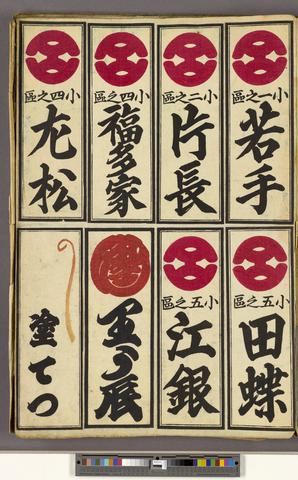 小一之區
若手
小二之區
片長
小四之區
福多家
小四之區
尢松
小五之區
田蝶
小五之區
江銀
塗てつ